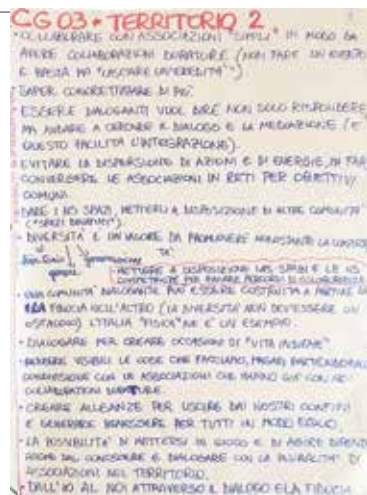 CG 03 • TERRITORIO 2
• COLLABORARE CON ASSOCIAZIONI "SIMILI" IN MODO DA
AVERE COLLABORAZIONI DURATURE (NON FARE UN EVENTO
E BASTA MA "LASCIARE UN'EREDITÀ")
• SAPER CONCRETIZZARE DI PIÙ.
• ESSERE DIALOGANTI VUOL DIRE NON SOLO RISPONDERE
MA ANDARE A CERCARE IL DIALOGO E LA MEDIAZIONE (E
QUESTO FACILITA L'INTEGRAZIONE).
• EVITARE LA DISPERSIONE DI AZIONI E DI ENERGIE, MA FAR
CONVERGERE LE ASSOCIAZIONI IN RETI PER OBIETTIVI
COMUNI.
• DARE I NS SPAZI, METTERLI A DISPOSIZIONE DI ALTRE COMUNITÀ
• DIVERSITÀ È UN VALORE DA PROMUOVERE NONOSTANTE LA
METTERE A DISPOSIZIONE NS SPAZI E LE NS
COMPETENZE PER AVVIARE PERCORSI DI
• UNA COMUNITÀ DIALOGANTE PUÒ ESSERE COSTRUITA A PARTIRE DA
LLA FIDUCIA NELL'ALTRO (LA DIVERSITÀ NON DEV'ESSERE UN
OSTACOLO) L'ITALIA "FISICA" NE È UN ESEMPIO.
• DIALOGARE PER CREARE OCCASIONI DI "VITA INSIEME"
• RENDERE VISIBILI LE COSE CHE FACCIAMO,
CON LE ASSOCIAZIONI CHE HANNO GIÀ CON NOI
COLLABORAZIONI DURATURE.
• CREARE ALLEANZE PER USCIRE DAI NOSTRI CONFINI
E GENERARE BENESSERE PER TUTTI IN MODO EQUO.
• LA POSSIBILITÀ DI METTERSI IN GIOCO E DI AGIRE
DAL CONOSCERE E DIALOGARE CON LA PLURALITÀ DI
ASSOCIAZIONI NEL TERRITORIO.
• DALL'IO AL NOI ATTRAVERSO IL DIALOGO E LA FIDUCIA